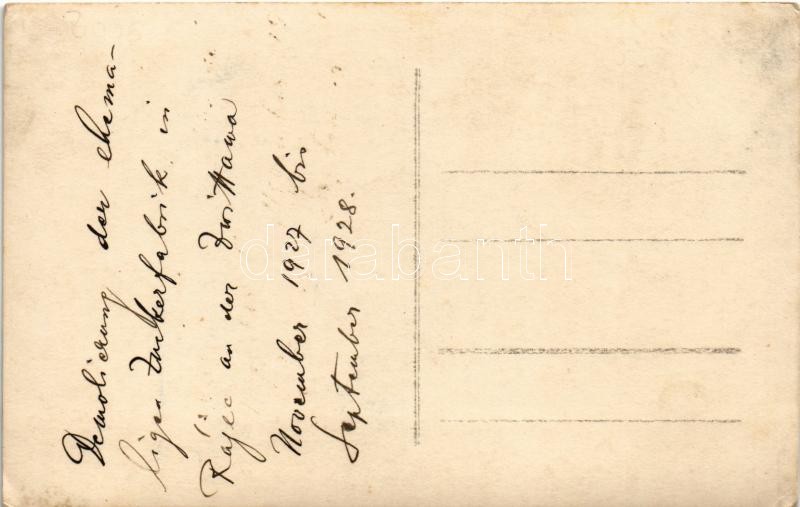 Demolierung der ehema-
ligen Zuckerfabrik in
Rájec an der Zwittawa
November 1927 bis
September 1928.
darabanth